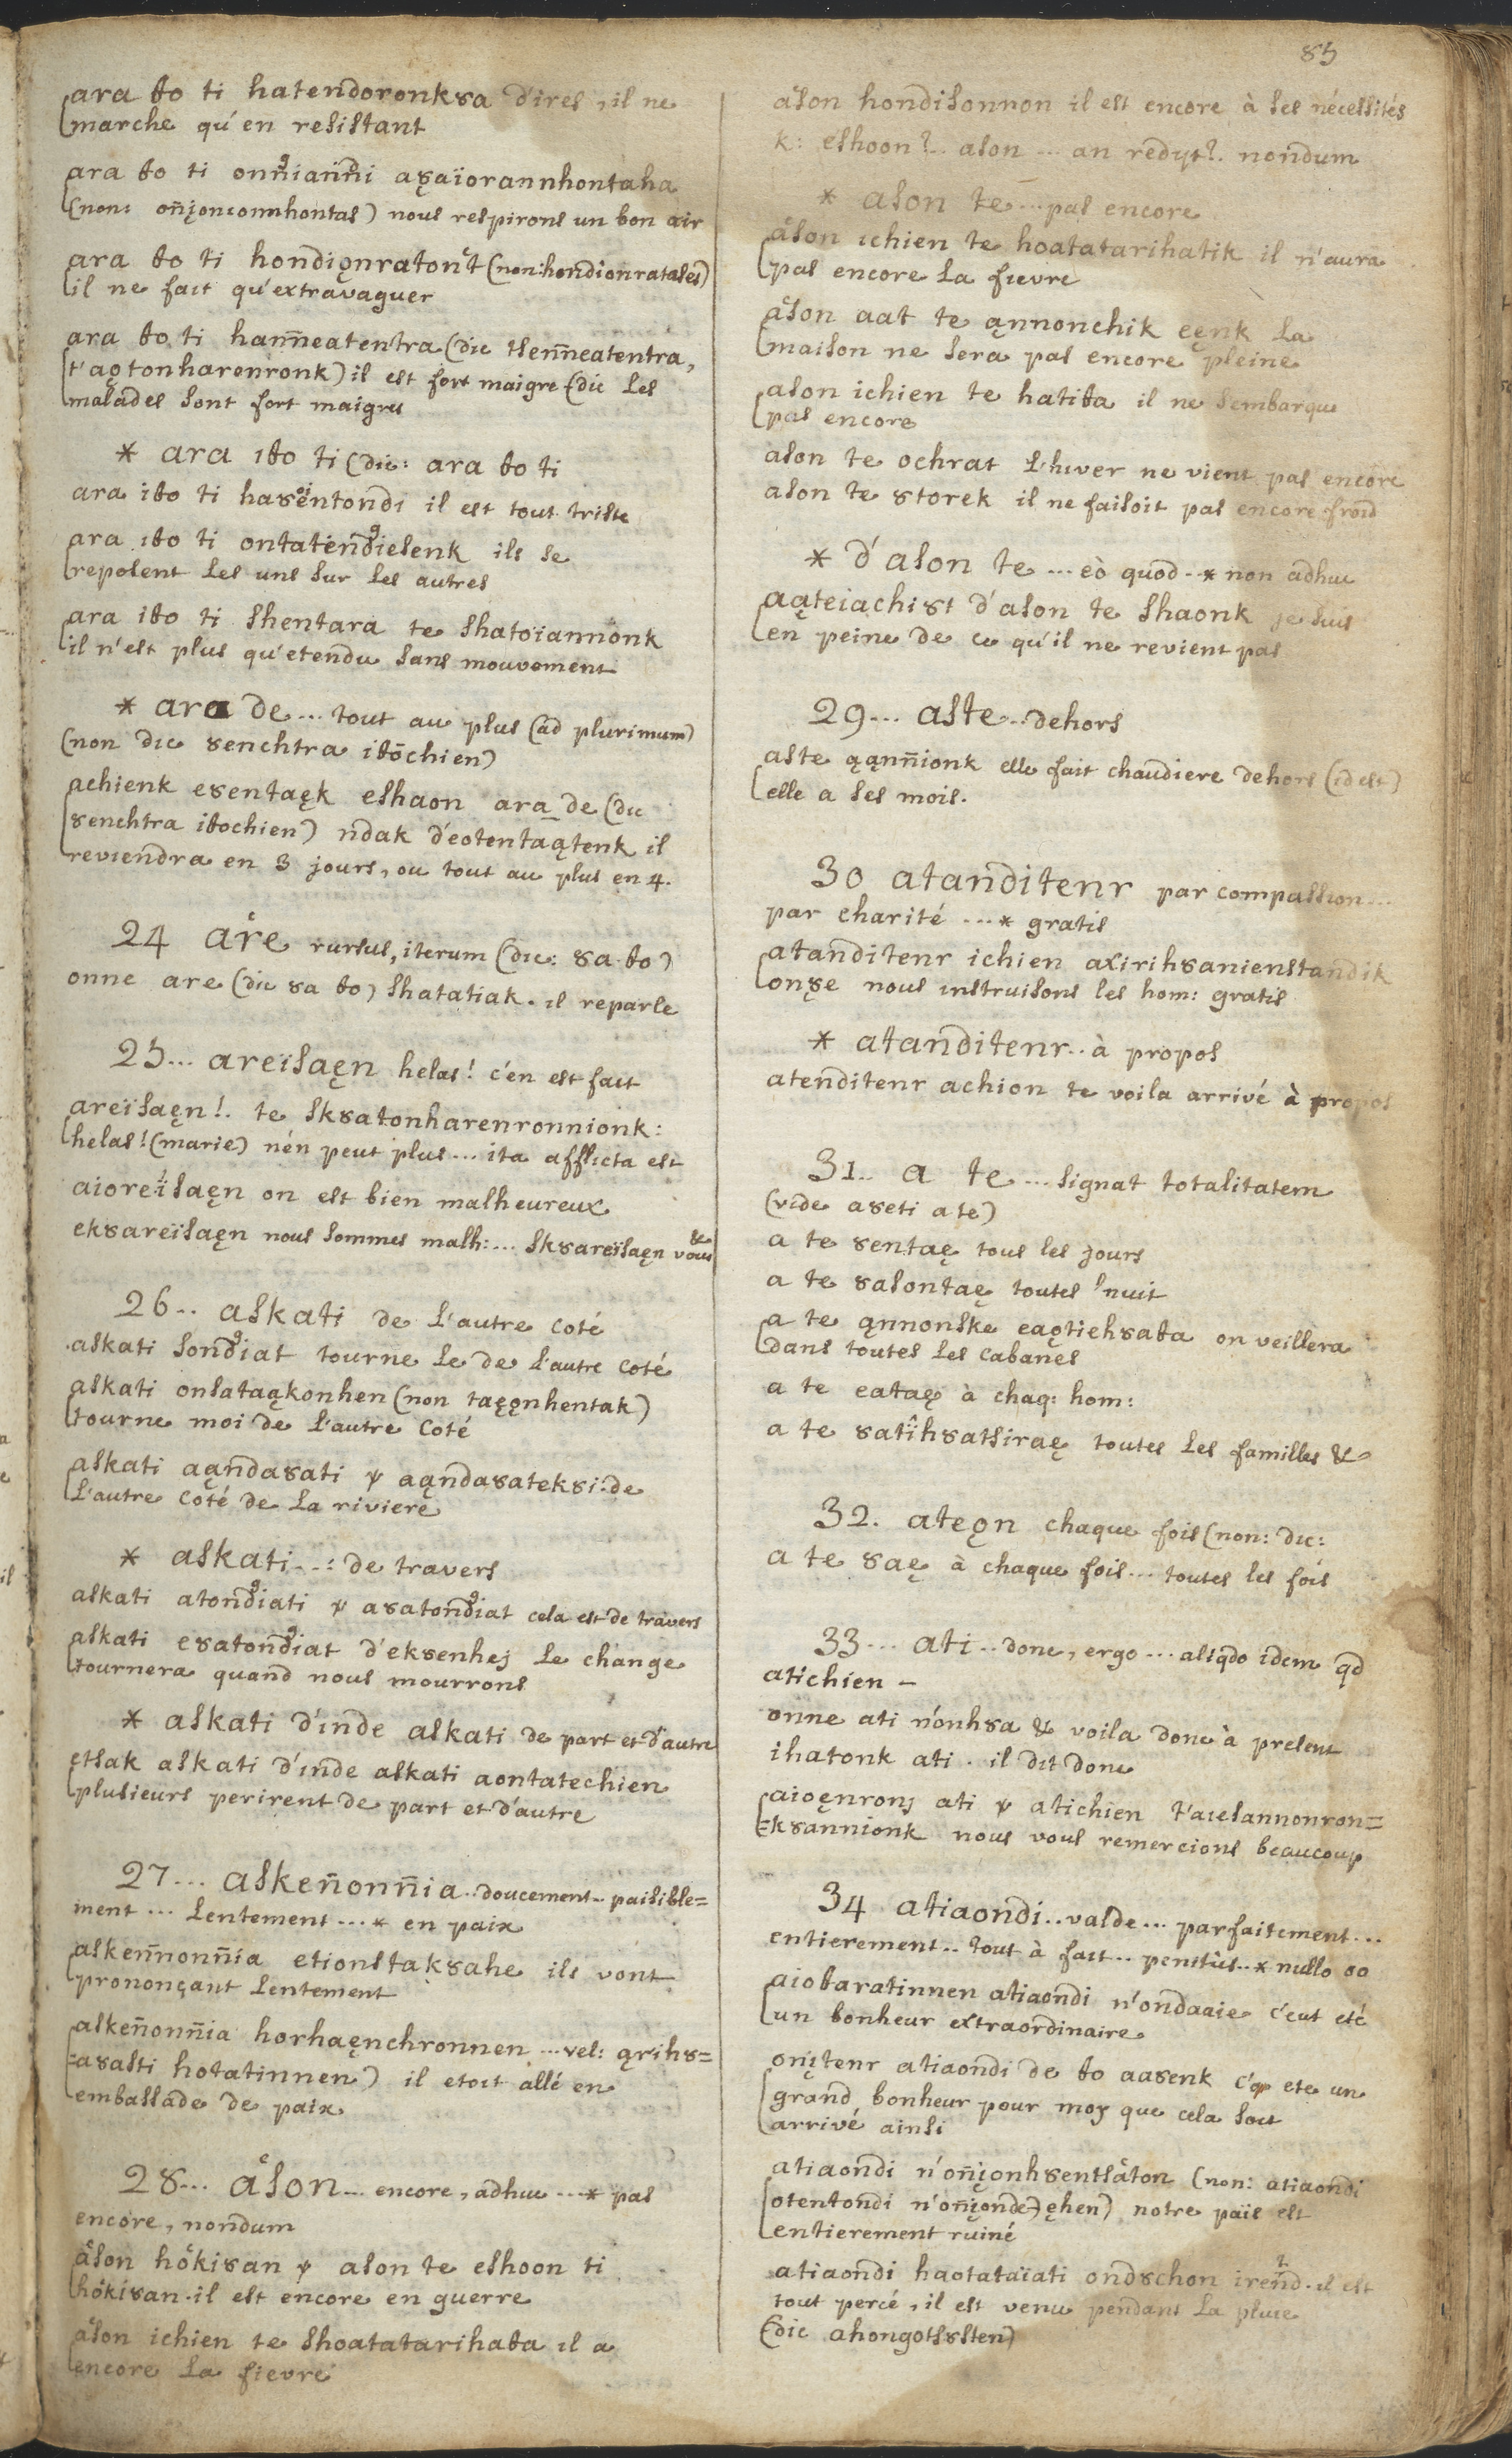 85
ara ȣo ti hatendoronkȣa d'ires, il ne
marche qu'en resistant
ara ȣo ti onn̄iann̄i aȣaïorannhontaha
(non: on̄ionconnhontas) nous respirons un bon air
ara ȣo ti hondiǫnratont (non: hondionratases)
il ne fait qu'extravaguer
ara ȣo ti hann̄eatentra (dic tsenn̄eatentra,
t'aǫtonharonronk) il est fort maigre (dic les
malades sont fort maigres
* ara iȣo ti (dic: ara ȣo ti
ara iȣo ti haȣentondi il est tout triste
ara iȣo ti ontatendiesenk ils se
reposent les uns sur les autres
ara iȣo ti shentara te shatoïannonk
il n'est plus qu'etendu sans mouvement
* ara de ... tout au plus (ad plurimum)
(non dic ȣenchtra iȣochien)
achienk eȣentaęk eshaon ara de (dic
ȣenchtra iȣochien) ndak d'eotentaątenk il
reviendra en 3 jours, ou tout au plus en 4.
24 are rursus, iterum (dic: ȣa ȣo)
onne are (dic ȣa ȣo) shatatiak. il reparle
25... areïsaęn helas! c'en est fait
areïsaęn!. te skȣatonharenronnionk:
helas! (marie) n'en peut plus ... ita afflicta est
aioreïsaęn on est bien malheureux
ekȣareïsaęn nous sommes malh: ... skȣareïsaęn vous &
26.. askati de l'autre coté
askati sondiat tourne le de l'autre coté
askati onsataąkonhen (non taęǫnhentak)
tourne moi de l'autre coté
askati aąndaȣati ꝟ aąndaȣatekȣi: de
l'autre coté de la riviere
* askati...: de travers
askati atondiati ꝟ aȣatondiat cela est de travers
askati eȣatondiat d'ekȣenhej le change
tournera quand nous mourrons
* askati d'inde askati de part et d'autre
etsak askati d'inde askati aontatechien
plusieurs perirent de part et d'autre
27... asken̄onn̄ia.. doucement.. paisible=
ment ... lentement ... * en paix
askenn̄onn̄ia etionstakȣahe ils vont
prononçant lentement
asken̄onn̄ia horhaęnchronnen ... vel: ąrihȣ=
=aȣasti hotatinnen) il etoit allé en
embassade de paix
28... ason... encore, adhuc ... * pas
encore, nondum
ason hokiȣan ꝟ ason te eshoon ti
hokiȣan. il est encore en guerre
ason ichien te shoatatarihaȣa il a
encore la fievre
ason hondisonnon il est encore à ses nécessités
k: eshoon?.. ason ... an redyt?. nondum
* ason te ... pas encore
ason ichien te hoatatarihatik il n'aura
pas encore la fievre
ason aat te ąnnonchik eęnk la
maison ne sera pas encore pleine
ason ichien te hatiȣa il ne s'embarque
pas encore
ason te ochrat l'hiver ne vient pas encore
ason te ȣtorek il ne faisoit pas encore froid
* d'ason te ... eò quod.. * non adhuc
aąteiachiȣt d'ason te shaonk je suis
en peine de ce qu'il ne revient pas
29... aste.. dehors
aste ąąnn̄ionk elle fait chaudiere dehors (id est)
elle a ses mois.
30 atanditenr par compassion...
par charité ... * gratis
atanditenr ichien axirihȣanienstandik
onȣe nous instruisons les hom: gratis
* atanditenr.. à propos
atenditenr achion te voila arrivé à propos
31.. a te ... signat totalitatem
(vide aȣeti ate)
a te ȣentaę tous les jours
a te ȣasontaę toutes nuit
a te ąnnonske eaǫtiehȣaȣa on veillera
dans toutes les cabanes
a te eataę à chaq: hom:
a te ȣatihȣatsiraę toutes les familles &
32. ateǫn chaque fois (non: dic:
a te ȣaę à chaque fois ... toutes les fois
33... ati.. donc, ergo ... aliqdo idem qd
atichien –
onne ati n'onhȣa & voila donc à present
ihatonk ati. il dit donc
aioęnronj ati ꝟ atichien t'aiesannonron=
=kȣannionk nous vous remercions beaucoup
34 atiaondi.. valde ... parfaitement...
entierement.. tout à fait.. penitùs.. * nullo oo
aioȣaratinnen atiaondi n'ondaaie c'eut eté
un bonheur extraordinaire
onįtenr atiaondi de ȣo aaȣenk ete un
grand bonheur pour moy que cela soit
arrivé ainsi
atiaondi n'on̄įonhȣentsaton (non: atiaondi
otentondi n'on̄įonde) ęhen) notre païs est
entierement ruiné
atiaondi haotataïati ondȣchon irend. il est
tout percé, il est venu pendant la pluie
(dic ahongotsȣsten)